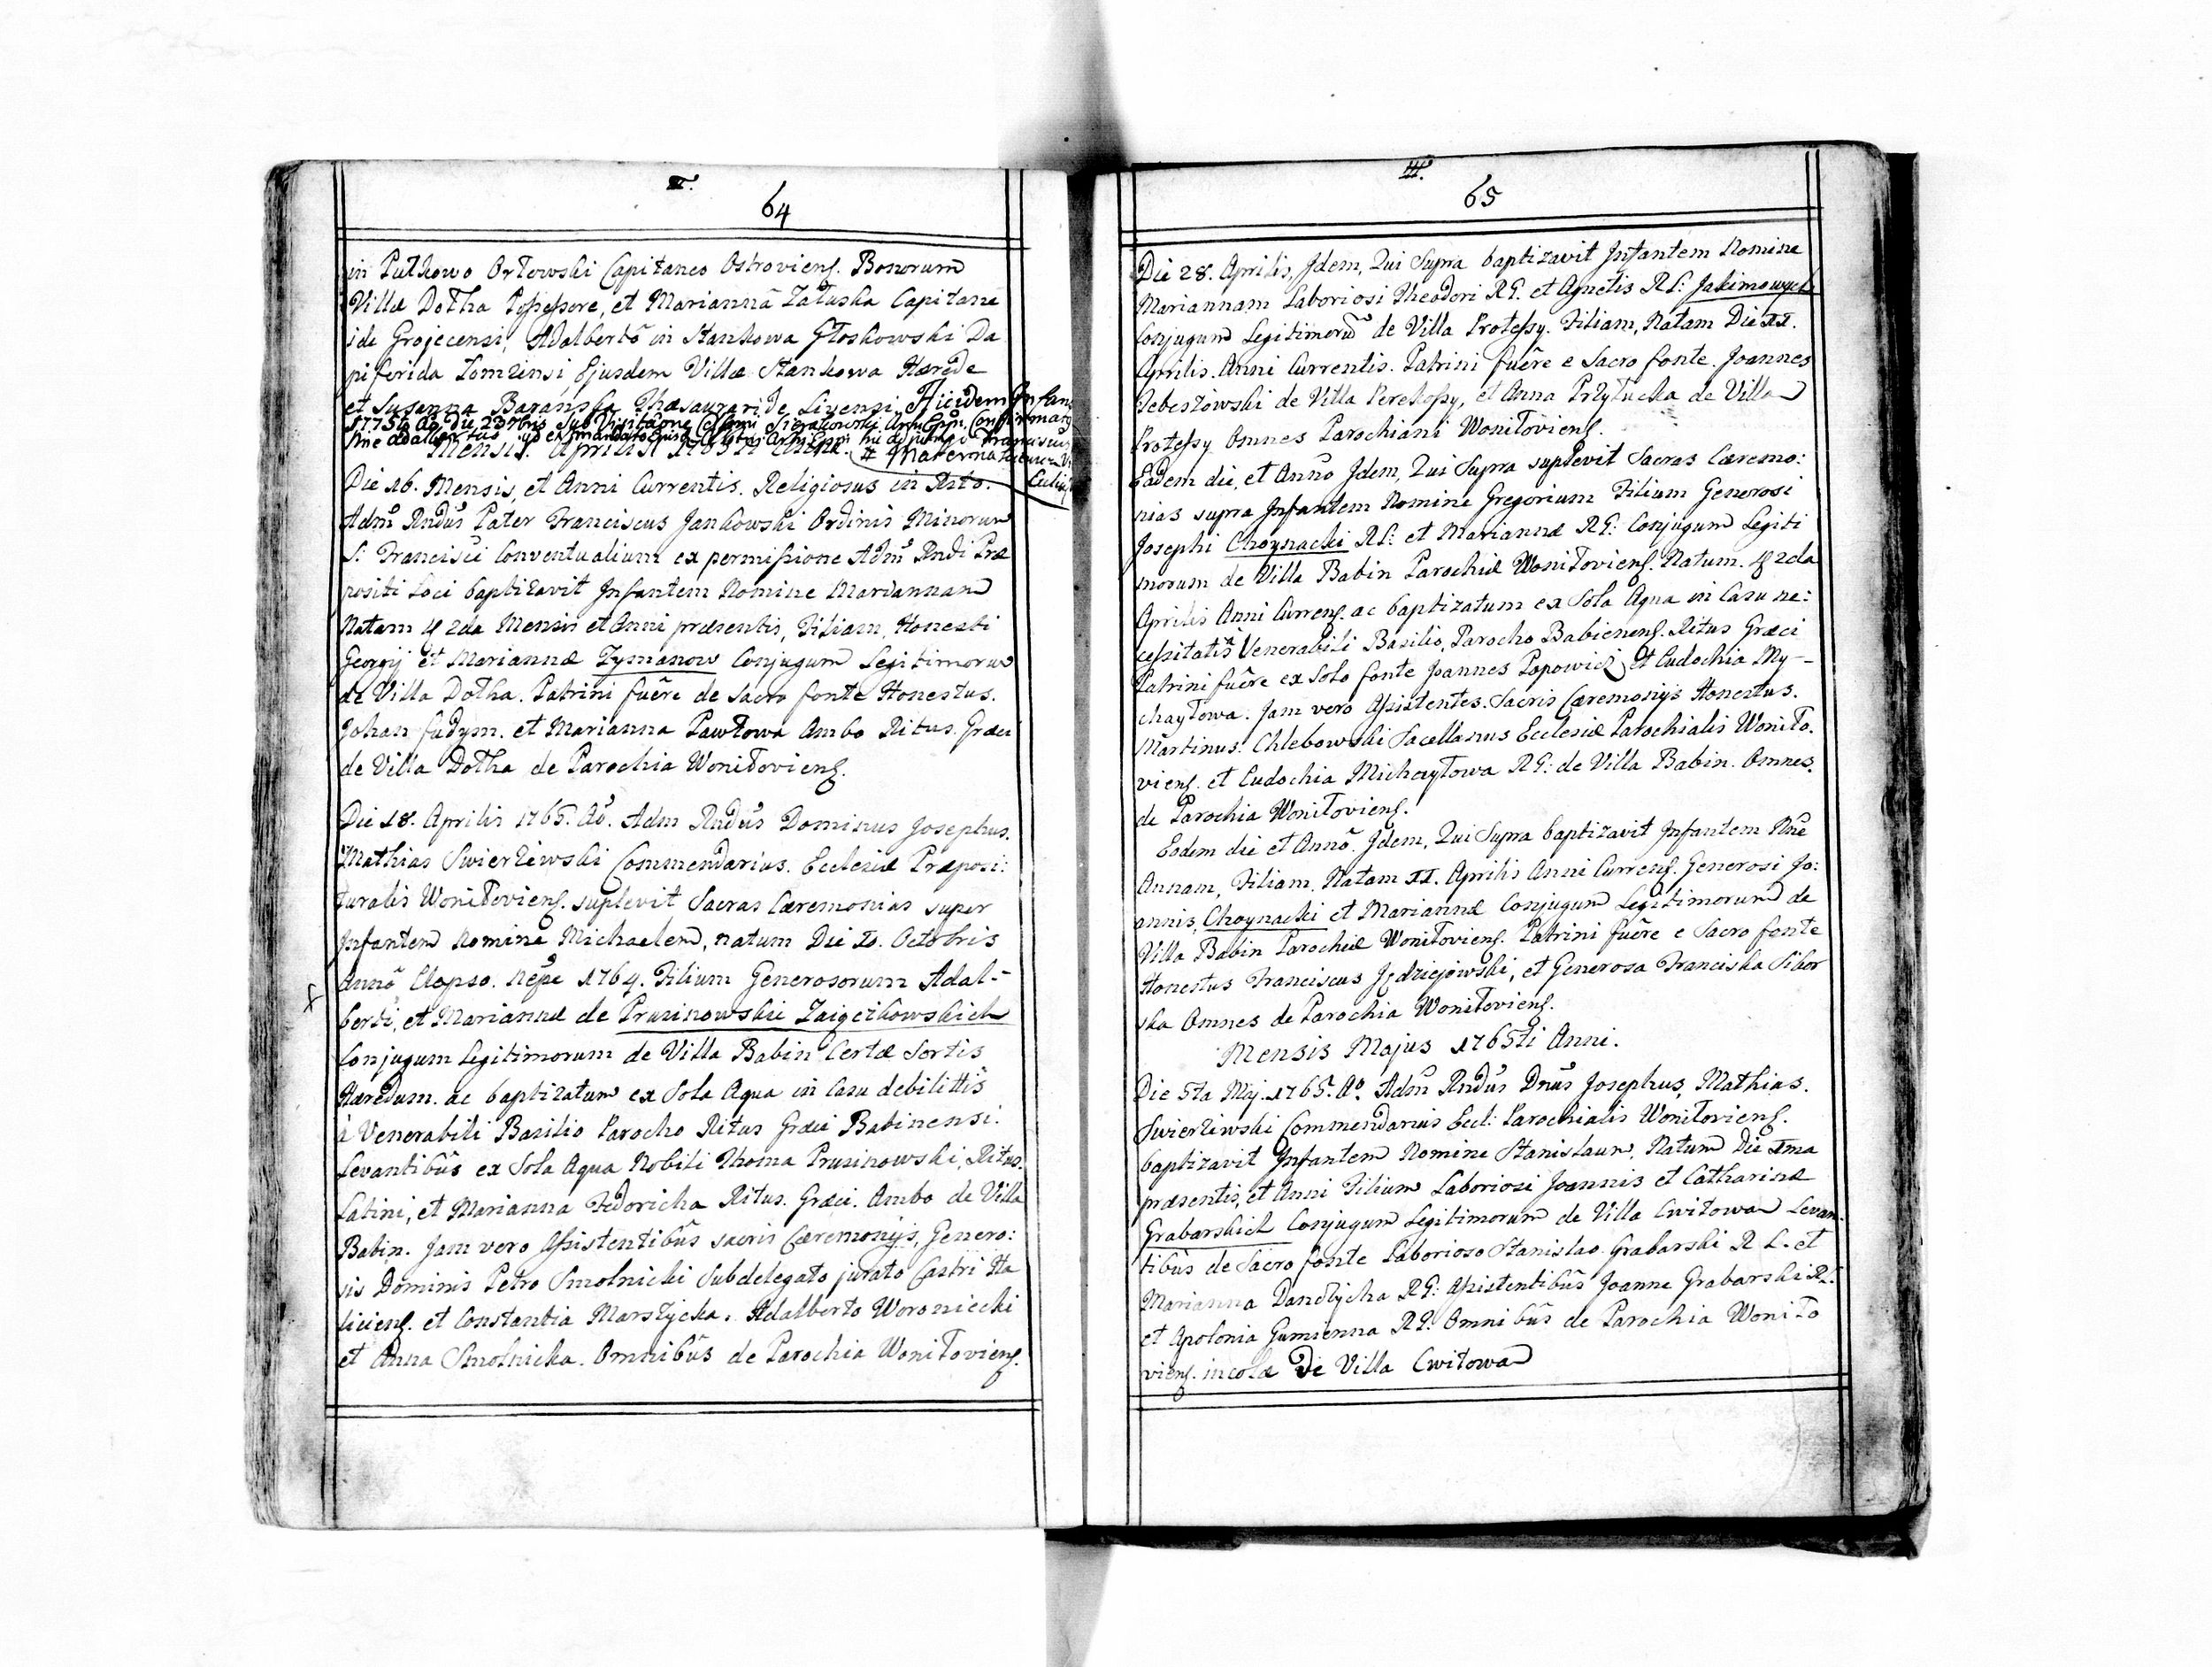 II.
64
in Pułkowo Orłowski Capitaneo Ostroviens. Bonorum
Villæ Dołha Possessore, et Mariannâ Załuska Capitane
ide Grojecensi, Adalbertô in Stankowa Głoskowski Da
piferida Łomzinsi, Ejusdem Villæ Stankowa Hærede
et Susanna Baranska Thæsauraride Livensi. Hic idem Infans
1775to Ao die 23 7bris Sub Visitaone Celsmi Sierakowski Archi Eppi. Confirmatq
Mensis Aprilis 1765ti
Die 16. Mensis, et Anni Currentis. Religiosus in Xrto.
Adm̃ Rndus Pater Franciscus Jankowski Ordinis Minorum
S: Francisci Conventualium ex permissione Adm̃ Rndi Præ
positi Loci baptizavit Infantem Nomine Mariannam
Natam 2da Mensis et Anni præsentis, Filiam, Honesti
Georgij et Mariannæ Zymanow Conjugum Legitimorum
de Villa Dołha. Patrini fuêre de Sacro fonte Honestus.
Johan fudym. et Marianna Pawłowa Ambo Ritus. Græci
de Villa Dołha de Parochia Woniłoviens.
Die 18. Aprilis 1765. Ao. Adm Rndus Dominus Josephus.
Mathias Swierziwski Commendarius. Ecclesiæ Præposi:
turalis Woniłoviens. suplevit Sacras Cæremonias super
Infantem Nomine Michaelem, natum Die X. Octobris
Annô Elapso. Nepe 1764. Filium Generosorum Adal-
berti, et Mariannæ de Prusinowskie Zaigczkowskich
Conjugum Legitimorum de Villa Babin Certæ Sortis
Hæredum. ac baptizatum ex Sola Aqua in Casu debilittis
à Venerabili Basilio Parocho Ritus Græci Babinensi.
Levantibûs ex Sola Aqua Nobili Thoma Prusinowski, Ritus.
Latini, et Marianna Fedoricha Ritus. Græci. Ambo de Villa
Babin. Jam vero Assistentibûs sacris Cæremonijs, Genero:
sis Dominis Petro Smolnicki Subdelegato jurato Castri Ha
liciens. et Constantia Marszycka. Adalberto Woroniecki
et Anna Smolnicka. Omnibûs de Parochia Woniłoviens.
III.
65
Die 28. Aprilis, Idem, Qui Supra baptizavit Infantem Nomine
Mariannam Laboriosi Theodori R G. et Agnetis R L: Jakimowych
Conjugum Legitimorum de Villa Protessy. Filiam, Natam Die XX.
Aprilis. Anni Currentis. Patrini fuêre e Sacro fonte. Joannes
de Villa Perekossy, et Anna Przyłucka de Villa
Protessy Omnes Parochiani Woniłoviens.
Eadem die, et Anno Idem, Qui Supra suplevit Sacras Cæremo:
nias supra Infantem Nomine Gregorium Filium Generosi
Josephi Choynacki R L: et Mariannæ R G: Conjugum Legiti
morum de Villa Babin Parochiæ Woniłoviens. Natum. 2da
Aprilis Anni Currens. ac baptizatum ex Sola Aqua in Casu ne:
cessitatis Venerabili Basilio, Parocho Babienens. Ritus Græci
Patrini fuêre ex Solo fonte Joannes Popowicz et Eudochia My-
chayłowa. Jam vero Assistentes. Sacris Cæremonijs Honestus.
Martinus. Chlebowski Sacellanus Ecclesiæ Parochialis Woniło.
viens. et Eudochia Michayłowa R G: de Villa Babin. Omnes.
de Parochia Woniłoviens.
Eodem die et Annô. Idem, Qui Supra baptizavit Infantem Nne
Annam, Filiam. Natam XX. Aprilis Anni Currens. Generosi Jo:
annis, Choynacki et Mariannæ Conjugum Legitimorum de
Villa Babin Parochiæ Woniłoviens. Patrini fuêre e Sacro fonte
Honestus Franciscus Jędziejowski, et Generosa Franciska Sibor
ska Omnes de Parochia Woniłoviens.
Mensis Majus 1765ti Anni.
Die 5ta Maj. 1765. Ao. Adm̃ Rndus Dnus Josephus, Mathias.
Swierziwski Commendarius Eccl: Parochialis Woniłoviens.
baptizavit Infantem Nomine Stanislaum, Natum Die Ima
præsentis, et Anni Filium Laboriosi Joannis et Catharinæ
Grabarskich Conjugum Legitimorum de Villa Cwitowa Levan.
tibûs de Sacro fonte Laborioso Stanislao Grabarski R L. et
Marianna Danczycha R G: Assistentibûs Joanne Grabarski R L:
et Apolonia Gumienna R G: Omnibûs de Parochia Woniło
viens. incolæ De Villa Cwitowa